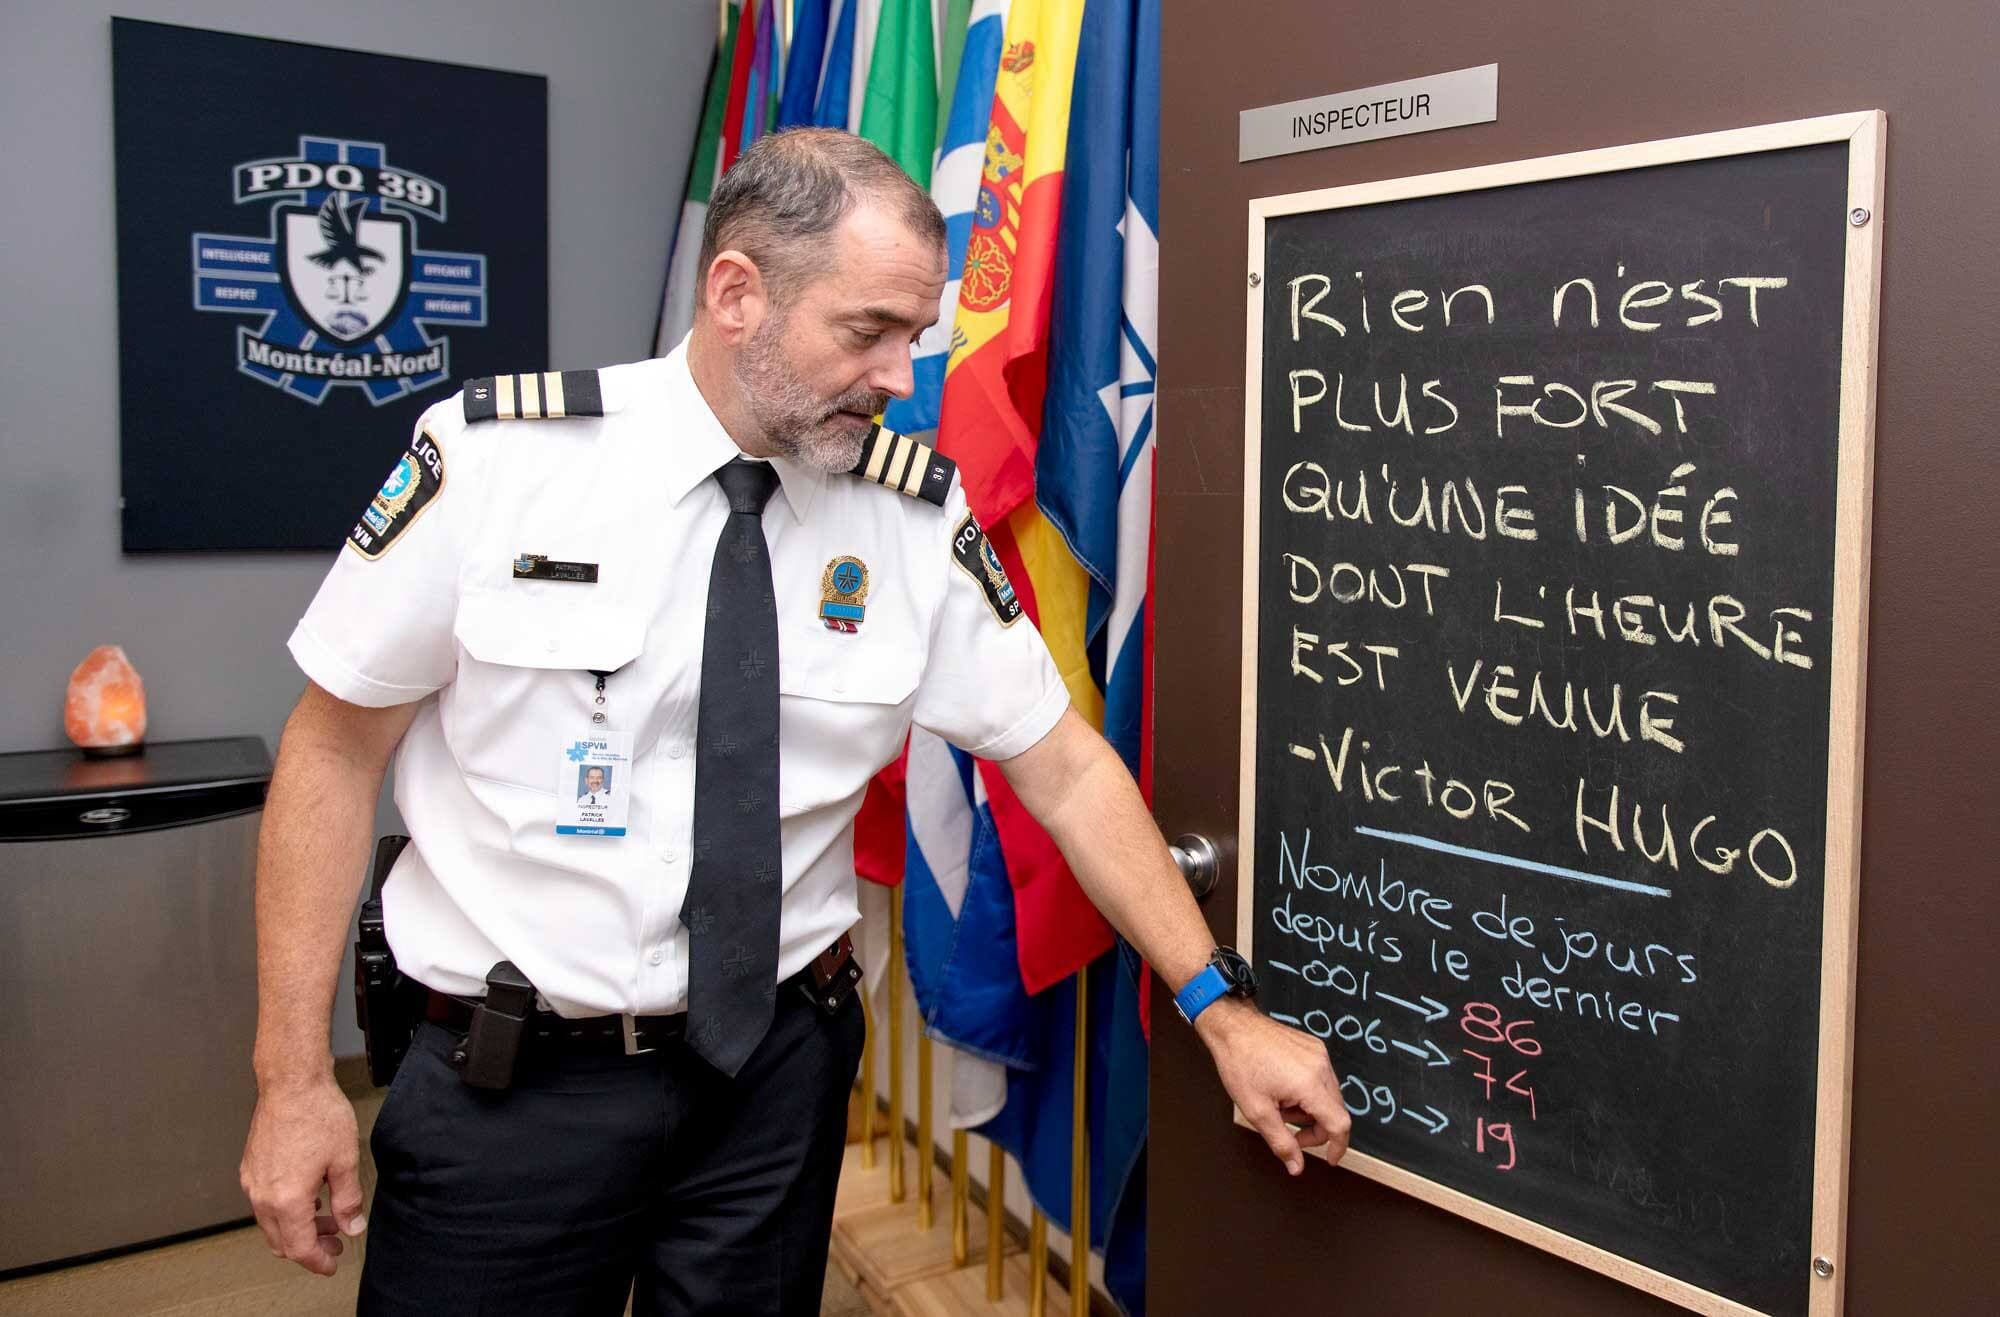 PDQ 39
INTELLIGENCE
EFFICACITÉ
RESPECT
INTÉGRITÉ
Montréal-Nord
INSPECTEUR
Rien n'est
PLUS FORT
QU'UNE IDÉE
DONT L'HEURE
EST VENUE
-Victor HUGO
Nombre de jours
depuis le dernier
-001→ 86
-006→ 74
09→ 19
39
39
LICE
VM
PO
SP
SPVM
PATRICK
LAVALLÉE
SPVM
INSPECTEUR
PATRICK
LAVALLÉE
Montréal